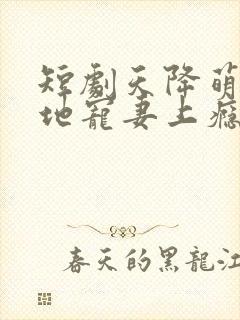 短劇天降萌
地寵妻上癮
春天的黑龍江